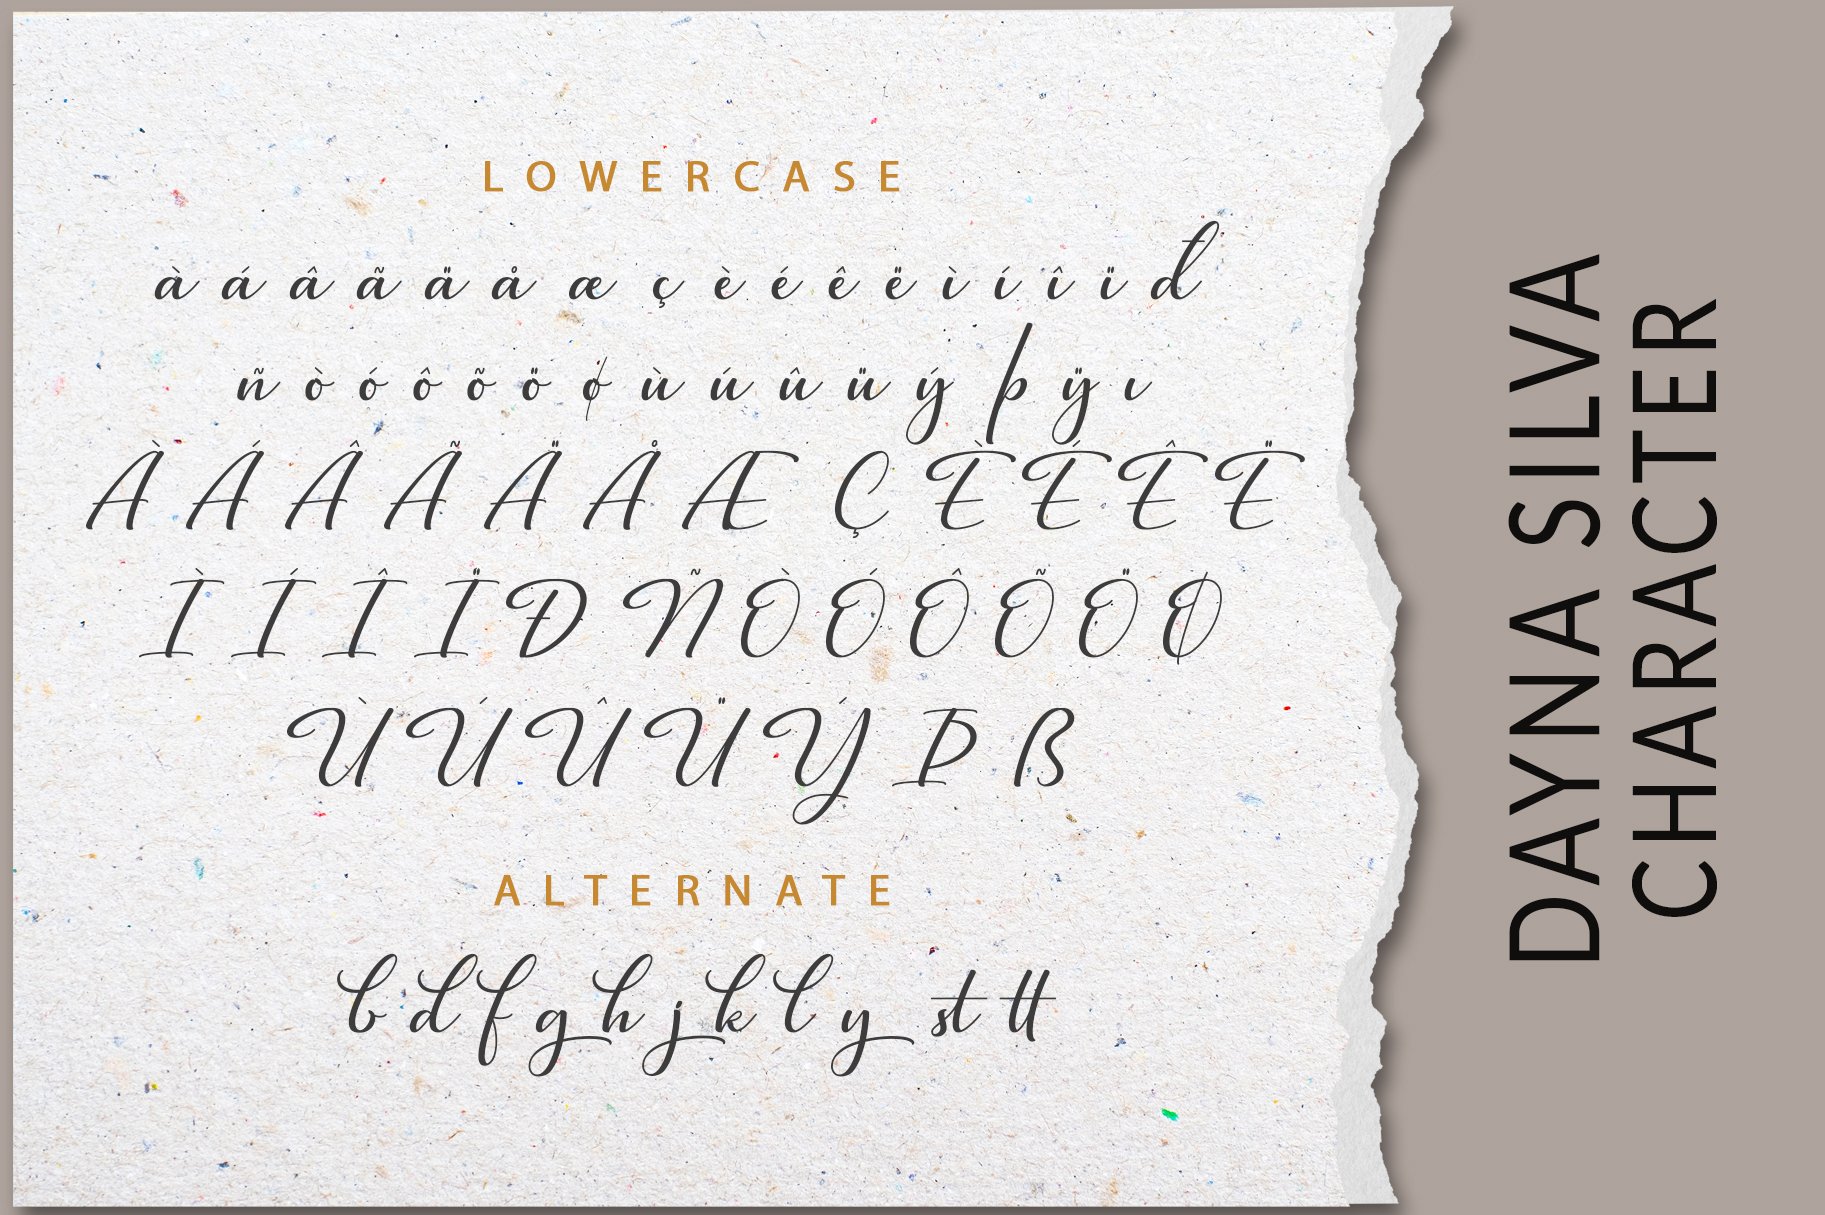 LOWERCASE
à á â ã ä å æ ç è é ê ë ì í î ï đ
ñ ò ó ô õ ö ø ù ú û ü ý þ ÿ ı
À Á Â Ã Ä Å Æ Ç È É Ê Ë
Ì Í Î Ï Đ Ñ Ò Ó Ô Õ Ö Ø
Ù Ú Û Ü Ý Þ ß
ALTERNATE
b d f g h j k l y st tt
DAYNA SILVA
CHARACTER